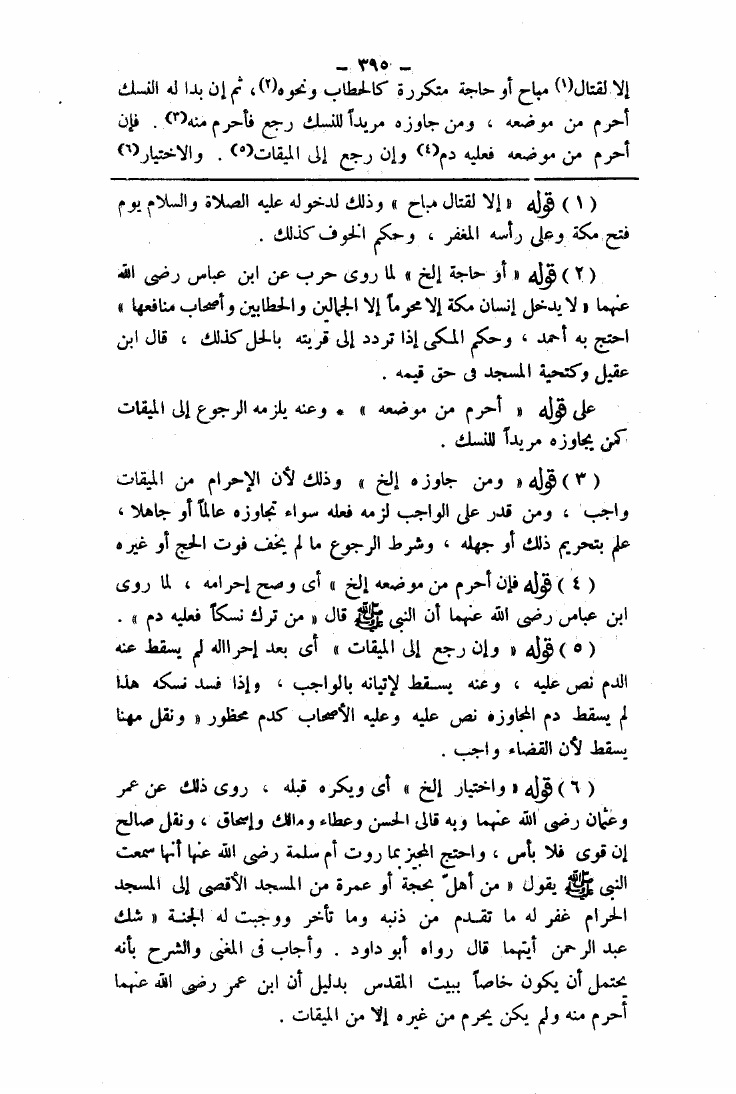 — ٣٩٥ —
إلا لقتال(١) مباح أو حاجة متكررة كالحطاب ونحوه(٢)، ثم إن بدا له النسك
أحرم من موضعه ، ومن جاوزه مريداً للنسك رجع فأحرم منه(٣) . فإن
أحرم من موضعه فعليه دم(٤) وإن رجع إلى الميقات(٥) . والاختيار(٦)
(١) قوله « إلا لقتال مباح » وذلك لدخوله عليه الصلاة والسلام يوم
فتح مكة وعلى رأسه المغفر ، وحكم الخوف كذلك .
(٢) قوله « أو حاجة إلخ » لما روى حرب عن ابن عباس رضى الله
عنهما « لا يدخل إنسان مكة إلا محرماً إلا الجمالين والحطابين وأصحاب منافعها »
احتج به أحمد ، وحكم المكى إذا تردد إلى قريته بالحل كذلك ، قال ابن
عقيل وكتحية المسجد فى حق قيمه .
على قوله « أحرم من موضعه » * وعنه يلزمه الرجوع إلى الميقات
كمن يجاوزه مريداً للنسك .
(٣) قوله « ومن جاوزه إلخ » وذلك لأن الإحرام من الميقات
واجب ، ومن قدر على الواجب لزمه فعله سواء تجاوزه عالماً أو جاهلا ،
علم بتحريم ذلك أو جهله ، وشرط الرجوع ما لم يخف فوت الحج أو غيره
(٤) قوله فإن أحرم من موضعه إلخ » أى وصح إحرامه ، لما روى
ابن عباس رضى الله عنهما أن النبى ﷺ قال « من ترك نسكاً فعليه دم » .
(٥) قوله « وإن رجع إلى الميقات » أى بعد إحرااله لم يسقط عنه
الدم نص عليه ، وعنه يسقط لإتيانه بالواجب ، وإذا فسد نسكه هذا
لم يسقط دم المجاوزه نص عليه وعليه الأصحاب كدم محظور « ونقل مهنا
يسقط لأن القضاء واجب .
(٦) قوله « واختيار إلخ » أى ويكره قبله ، روى ذلك عن عمر
وعثمان رضى الله عنهما وبه قالى الحسن وعطاء ومالك وإسحاق ، ونقل صالح
إن قوى فلا بأس ، واحتج المجيز بما روت أم سلمة رضى الله عنها أنها سمعت
النبى ﷺ يقول « من أهلّ بحجة أو عمرة من المسجد الأقصى إلى المسجد
الحرام غفر له ما تقدم من ذنبه وما تأخر ووجبت له الجنة « شك
عبد الرحمن أيتهما قال رواه أبو داود . وأجاب فى المغنى والشرح بأنه
يحتمل أن يكون خاصاً ببيت المقدس بدليل أن ابن عمر رضى الله عنهما
أحرم منه ولم يكن يحرم من غيره إلا من الميقات .